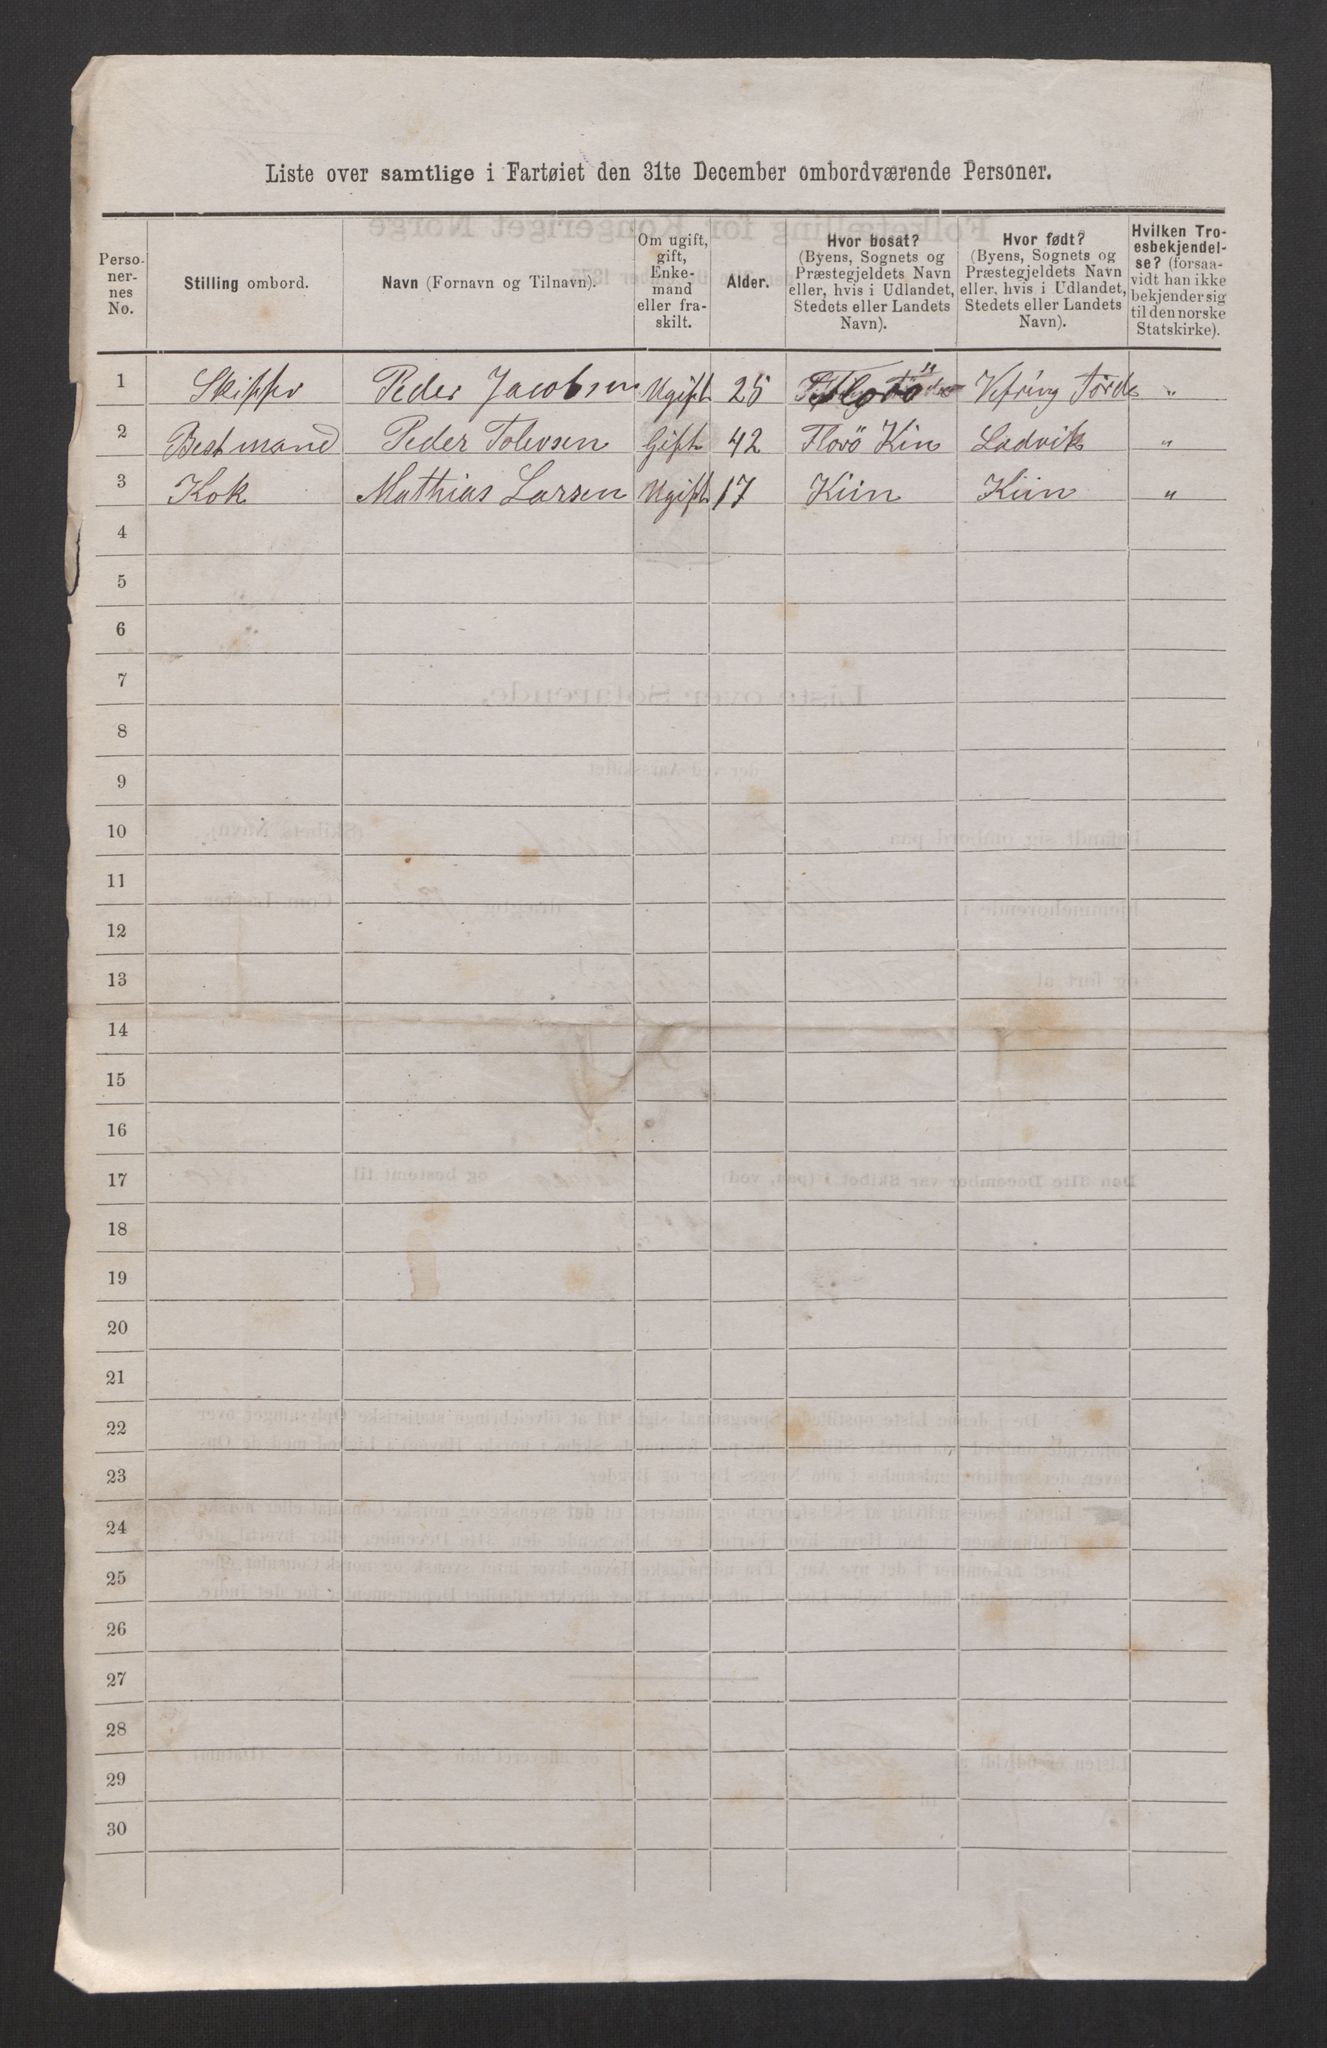 Liste over samtlige i Fartøiet den 31te December ombordværende Personer.
Personernes No.
Stilling ombord.
Navn (Fornavn og Tilnavn).
Om ugift, gift, Enkemand eller fraskilt.
Alder.
Hvor bosat? (Byens, Sognets og Præstegjeldets Navn eller, hvis i Udlandet, Stedets eller Landets Navn).
Hvor født? (Byens, Sognets og Præstegjeldets Navn eller, hvis i Udlandet, Stedets eller Landets Navn).
Hvilken Troesbekjendelse? (forsaavidt han ikke bekjender sig til den norske Statskirke).
1 Skipper Peder Jacobsen Ugift 25 Florö Vefring Förde "
2 Bestmand Peder Tolevsen Gift 42 Florö Kin Ladvik "
3 Kok Mathias Larsen Ugift 17 Kiin Kiin "
4
5
6
7
8
9
10
11
12
13
14
15
16
17
18
19
20
21
22
23
24
25
26
27
28
29
30